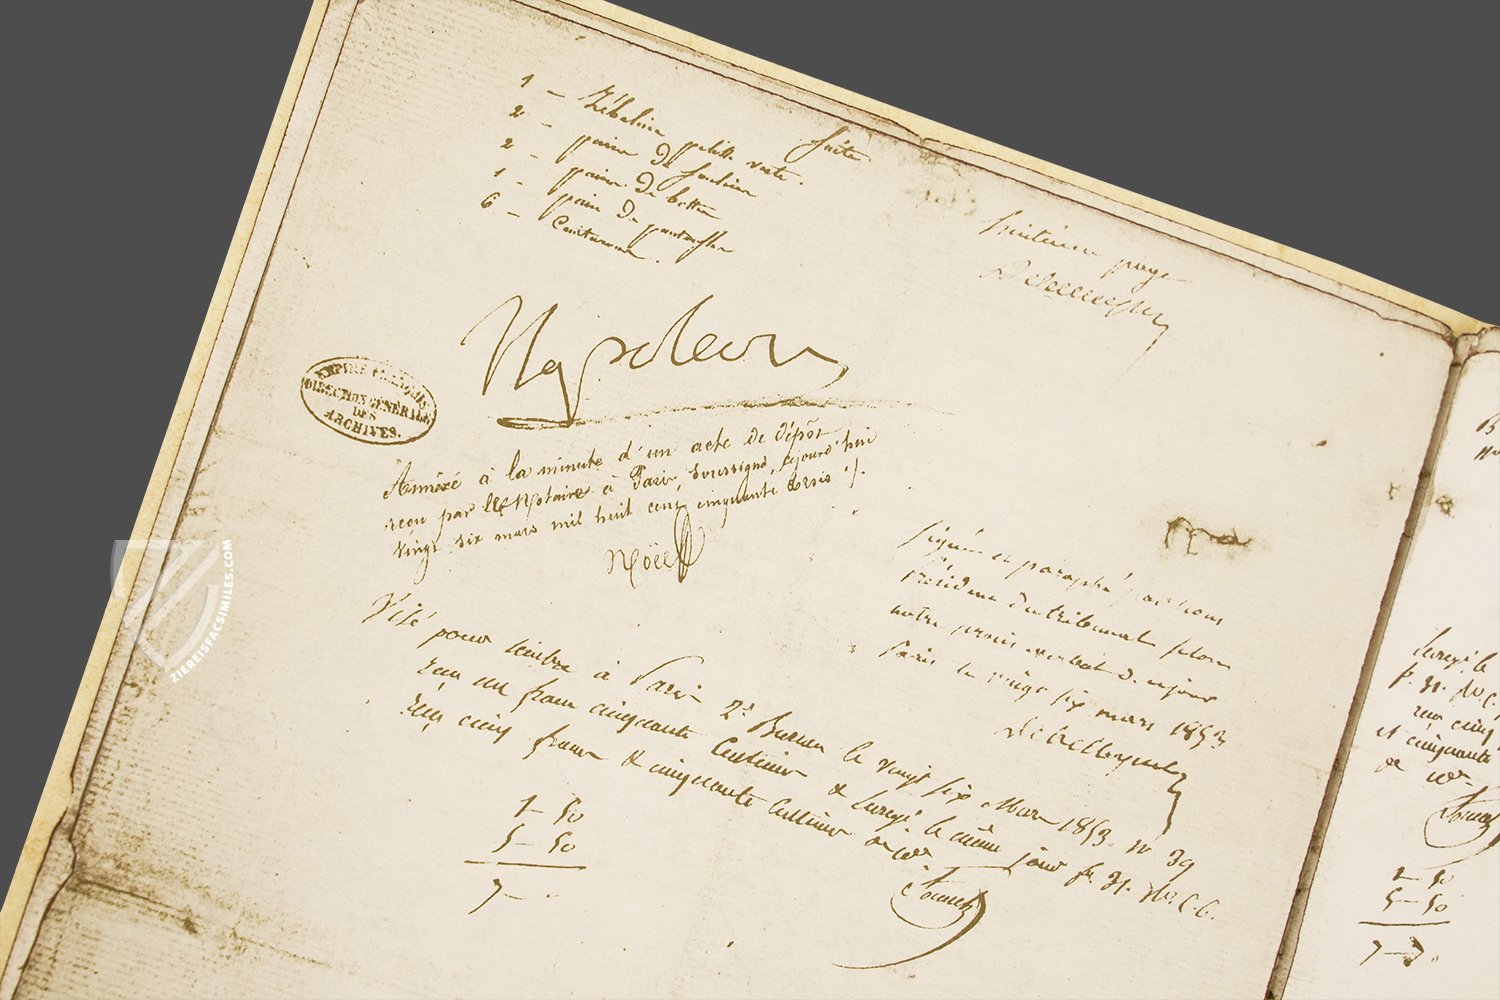 Suite
1 – Zibeline petite veste.
2 – paires de souliers
2 – paires de bottes
1 – paire de pantoufles
6 – Ceintures.
huitième page
Debelleyme
Napoleon
EMPIRE FRANÇAIS
DIRECTION GÉNÉRALE
DES
ARCHIVES.
Annexé à la minute d'un acte de dépôt
reçu par Me Notaire à Paris, soussigné, cejourd'hui
vingt six mars mil huit cent cinquante trois ./.
Noël
Signé et paraphé par nous
Président du tribunal selon
notre procès verbal de ce jour
Paris le vingt six mars 1853
Debelleyme
Visé pour timbre à Paris 2e Bureau le vingt six Mars 1853. N° 39
reçu un franc cinquante Centimes & Enregé. le même jour fo. 31. Ro. C. 6.
reçu cinq francs & cinquante Centimes de Xe.
1 – 50
5 – 50
7 – "
Enregé. le
fo. 31. Ro. C.
reçu cinq
et cinquante
de Xe.
1 – 50
5 – 50
7 – ".
ZIEREISFACSIMILES.COM